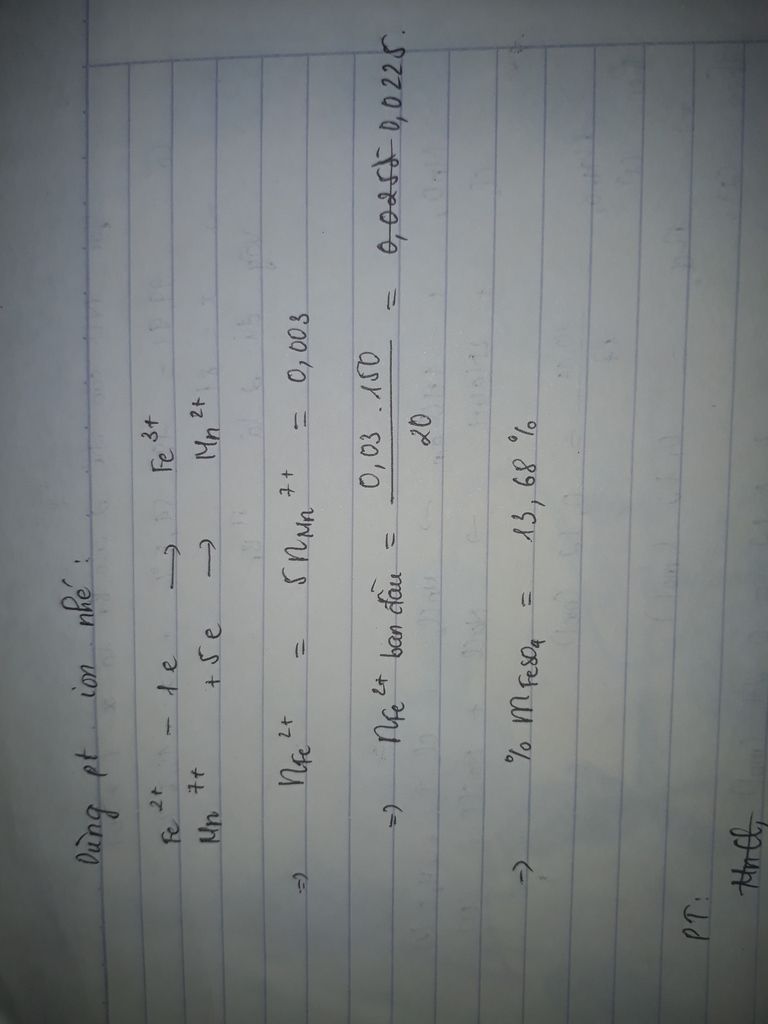 Dùng pt ion nhé:
Fe²⁺ - 1e → Fe³⁺
Mn⁷⁺ + 5e → Mn²⁺
=> nFe²⁺ = 5nMn⁷⁺ = 0,003
=> nFe²⁺ ban đầu = 0,03 . 150 / 20 = 0,0225.
=> % mFeSO₄ = 13,68 %
PT: